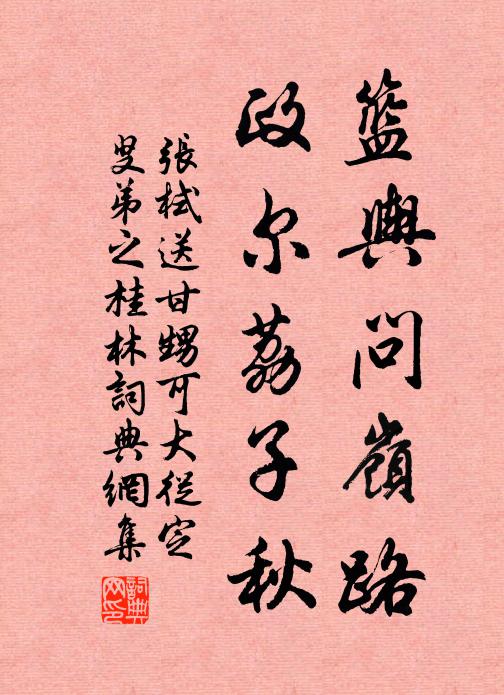 籃輿問嶺路
政尔荔子秋
張栻送甘甥可大從定
叟弟之桂林詞典網集
詞典网印